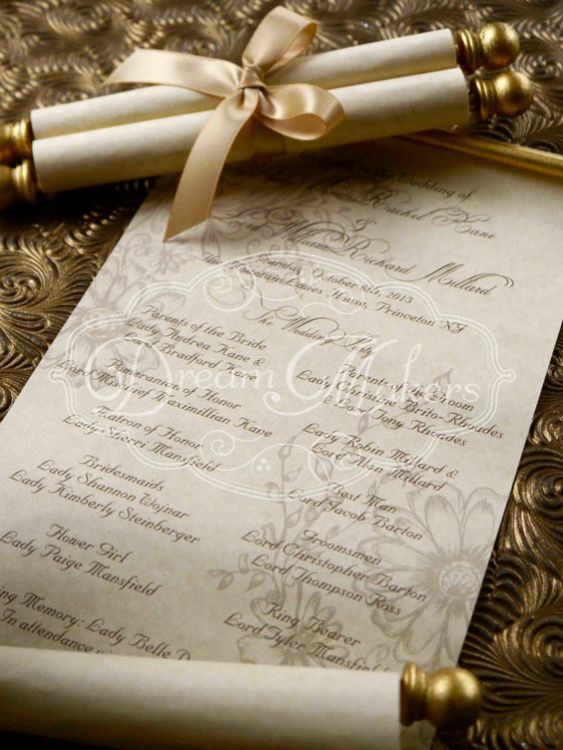 the Wedding of
Rachel Kane
&
Lord William Richard Millard
Sunday, October 6th, 2013
The Fountain Lanes House, Princeton NJ
The Wedding Party
Parents of the Bride
Lady Andrea Kane &
Lord Bradford Kane
Pomeranian of Honor
Lord Manchief Maximillian Kane
Matron of Honor
Lady Sherri Mansfield
Bridesmaids
Lady Shannon Wojnar
Lady Kimberly Steinberger
Flower Girl
Lady Paige Mansfield
Parents of the Groom
Lady Christine Brito-Rhoades
& Lord Tony Rhoades
Lady Robin Millard &
Lord Alan Millard
Best Man
Lord Jacob Barton
Groomsmen
Lord Christopher Barton
Lord Thompson Ross
Ring Bearer
Lord Tyler Mansfield
Memory: Lady Belle
In attendance
Dream Makers